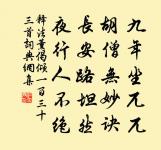 九年坐兀兀
胡僧無妙訣
長安路坦然
夜行人不絕
釋法薰偈傾一百三十
三首詞典網集